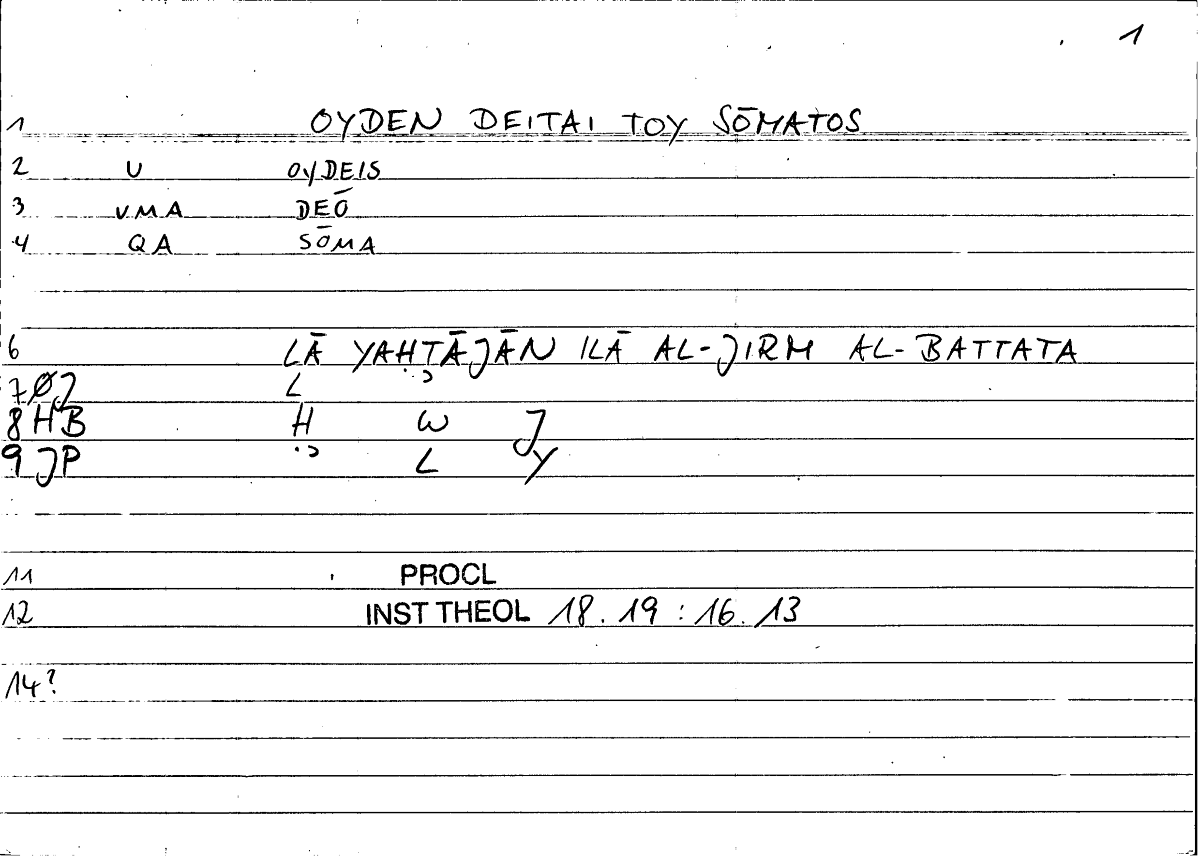 1
1 OYDEN DEITAI TOY SŌMATOS
2 U OYDEIS
3 VMA DEŌ
4 QA SŌMA
6 LĀ YAḤTĀJĀN ILĀ AL-JIRM AL-BATTATA
7ØJ L
8HB H W J
9JP L Y
11 PROCL
12 INST THEOL 18.19:16.13
14?